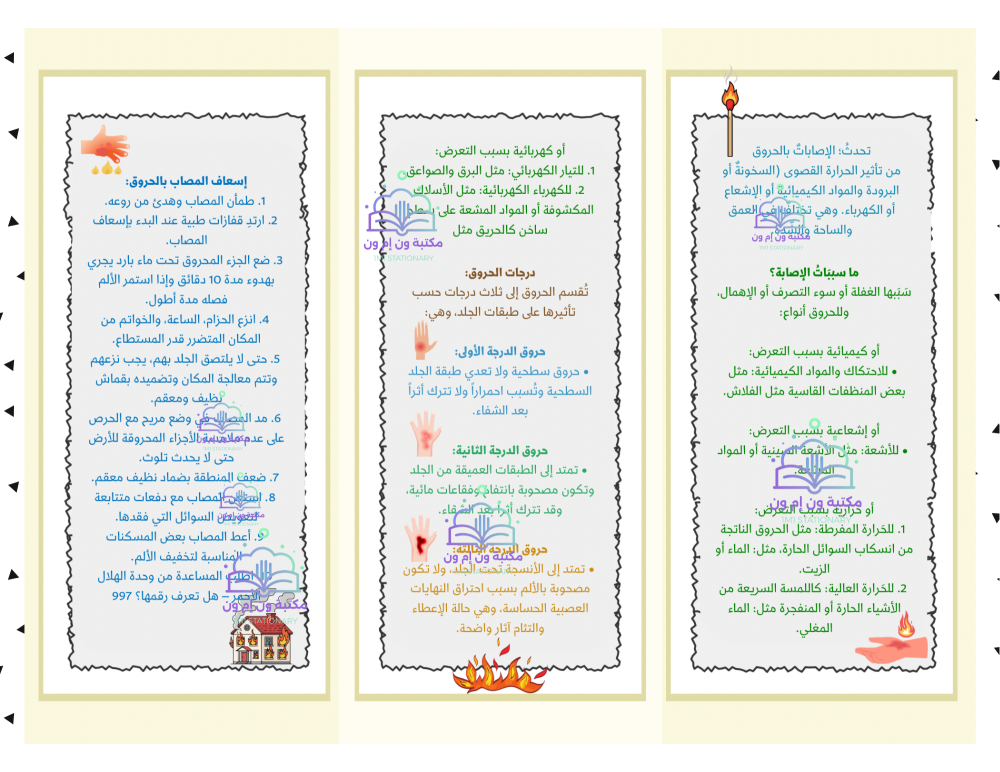 تحدثُ؛ الإصاباتُ بالحروق
من تأثير الحرارة القصوى (السخونةُ أو
البرودة والمواد الكيميائية أو الإشعاع
أو الكهرباء. وهي تختلف في العمق
والساحة والشدة.
ما سببَاتُ الإصابة؟
سَبَبها الغفلة أو سوء التصرف أو الإهمال،
وللحروق أنواع:
أو كيميائية بسبب التعرض:
• للاحتكاك والمواد الكيميائية: مثل
بعض المنظفات القاسية مثل الفلاش.
أو إشعاعية بسبب التعرض:
• للأشعة: مثل الأشعة السينية أو المواد
المشعة.
أو حَرارية بسبب التعرض:
1. للحَرارة المفرطة: مثل الحروق الناتجة
من انسكاب السوائل الحارة، مثل: الماء أو
الزيت.
2. للحَرارة العالية: كاللمسة السريعة من
الأشياء الحارة أو المنفجرة مثل: الماء
المغلي.
مكتبة ون إم ون
1M1 STATIONARY
مكتبة ون إم ون
1M1 STATIONARY
أو كهربائية بسبب التعرض:
1. للتيار الكهربائي: مثل البرق والصواعق.
2. للكهرباء الكهربائية: مثل الأسلاك
المكشوفة أو المواد المشعة على سطح
ساخن كالحريق مثل
درجات الحروق:
تُقسم الحروق إلى ثلاث درجات حسب
تأثيرها على طبقات الجلد، وهي:
حروق الدرجة الأولى:
• حروق سطحية ولا تعدي طبقة الجلد
السطحية وتُسبب احمراراً ولا تترك أثراً
بعد الشفاء.
حروق الدرجة الثانية:
• تمتد إلى الطبقات العميقة من الجلد
وتكون مصحوبة بانتفاخ وفقاعات مائية،
وقد تترك أثراً بعد الشفاء.
حروق الدرجة الثالثة:
• تمتد إلى الأنسجة تحت الجلد، ولا تكون
مصحوبة بالألم بسبب احتراق النهايات
العصبية الحساسة، وهي حالة الإعطاء
والتئام آثار واضحة.
مكتبة ون إم ون
1M1 STATIONARY
مكتبة ون إم ون
إسعاف المصاب بالحروق:
1. طمأن المصاب وهدئ من روعه.
2. ارتدِ قفازات طبية عند البدء بإسعاف
المصاب.
3. ضع الجزء المحروق تحت ماء بارد يجري
بهدوء مدة 10 دقائق وإذا استمر الألم
فصله مدة أطول.
4. انزع الحزام، الساعة، والخواتم من
المكان المتضرر قدر المستطاع.
5. حتى لا يلتصق الجلد بهم، يجب نزعهم
وتتم معالجة المكان وتضميده بقماش
نظيف ومعقم.
6. مد المصاب في وضع مريح مع الحرص
على عدم ملامسة الأجزاء المحروقة للأرض
حتى لا يحدث تلوث.
7. ضعف المنطقة بضماد نظيف معقم.
8. المصاب مع دفعات متتابعة
لتعويض السوائل التي فقدها.
9. أعط المصاب بعض المسكنات
المناسبة لتخفيف الألم.
اطلب المساعدة من وحدة الهلال
الأحمر – هل تعرف رقمها؟ 997
مكتبة ون إم ون
مكتبة ون إم ون
مكتبة ون إم ون
1M1 STATIONARY